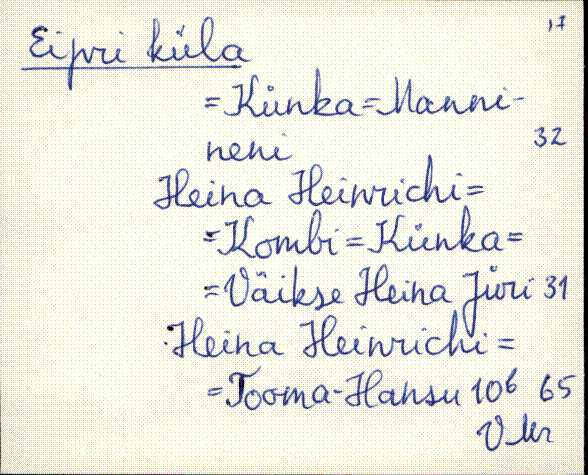 17
Eipri küla
=Künka=Manni-
neni 32
Heina Heinrichi=
=Kombi=Künka=
=Väikse Heina Jüri 31
Heina Heinrichi=
=Tooma-Hansu 10⁶ 65